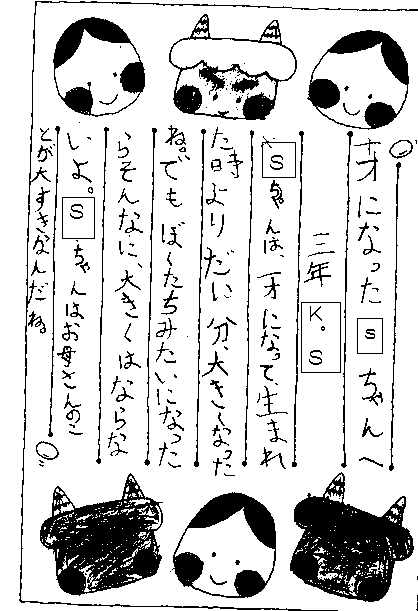 一才になった S ちゃんへ
三年 K。S
S ちゃんは、一才になって、生まれ
た時よりだい分、大きくなった
ね。でもぼくたちみたいになった
らそんなに、大きくはならな
いよ。 S ちゃんはお母さんのこ
とが大すきなんだね。